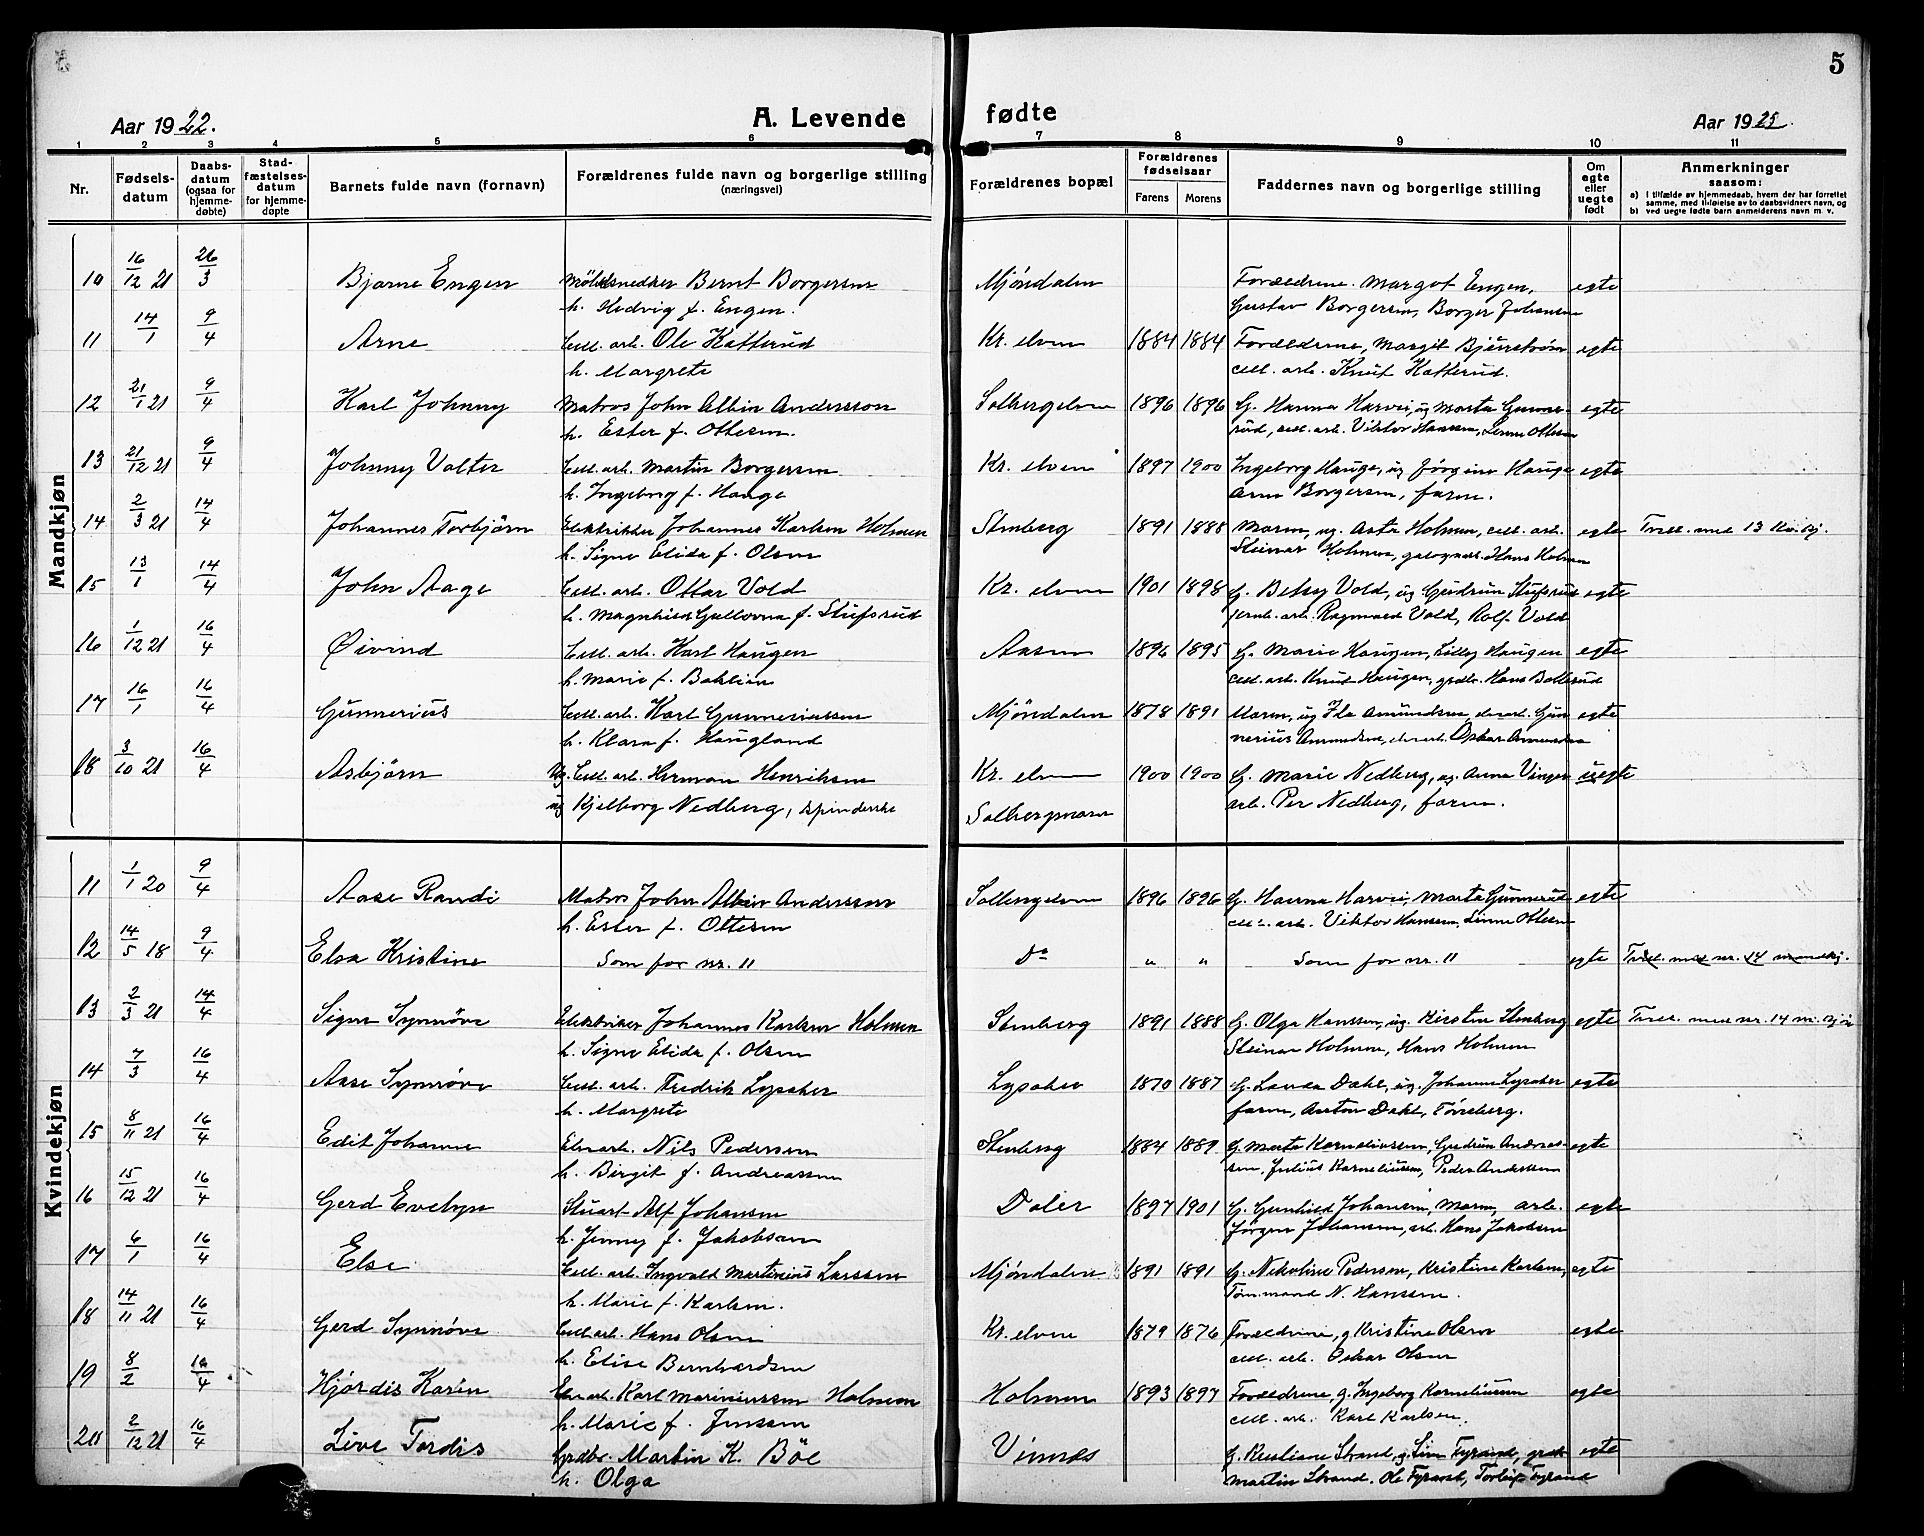 5
Aar 1922.
A. Levende
fødte
Aar 1925.
1 2 3 4 5 6 7 8 9 10 11
Nr.
Fødsels-
datum
Daabs-
datum
(ogsaa for
hjemme-
døbte)
Stad-
fæstelses-
datum
for hjemme-
døpte
Barnets fulde navn (fornavn)
Forældrenes fulde navn og borgerlige stilling
(næringsvei)
Forældrenes bopæl
Forældrenes
fødselsaar
Farens
Morens
Faddernes navn og borgerlige stilling
Om
egte
eller
uegte
født
Anmerkninger
saasom:
a) I tilfælde av hjemmedaab, hvem der har forrettet
samme, med tilføielse av to daabsvidners navn, og
b) ved uegte fødte barn anmelderens navn m. v.
Mandkjøn
10 16/12 21 26/3 Bjarne Engen Bernt Borgersen Mjöndalen Forældrene. Margot Engen, egte
h. Hedvig f. Engen. Gustav Borgersen, Borger Johansen
11 14/1 9/4 Arne Cell. arb. Ole Hatterud Kr. elven 1884 1884 Forældrene, Margit egte
h. Margrete cell. arb. Knut Hatterud.
12 21/1 21 9/4 Karl Johnny Matros John Albin Andersson Solbergelven 1896 1896 G. Hanna Harvei, ug Marta Gunne- egte
h. Ester f. Ottesen. rud, cell. arb. Viktor Hansen, Ottesen
13 21/12 21 9/4 Johnny Valter Cell. arb. Martin Borgersen Kr. elven 1897 1900 Ingeborg Hauge, ug Jörgine Hauge egte
h. Ingeborg f. Hauge Borgersen, farm.
14 2/3 21 14/4 Johannes Torbjörn Elektriker Johannes Karlsen Holmen Stenberg 1891 1888 Marm, ug. Asta Holmen, cell. arb. egte Tvill. med 13
h. Signe Elida f. Olsen Steinar Holmen, Hans Holmen
15 13/1 14/4 John Aage Cell. arb. Ottar Vold Kr. elven 1901 1898 G. Betsy Vold, ug Gudrun Stufsrud egte
h. Magnhild f. Stufsrud arb. Ragnvald Vold, Rolf Vold
16 1/12 21 16/4 Øivind Cell. arb. Karl Haugen Aasen 1896 1895 G. Marie Haugen, Haugen egte
h. Marie f. cell. arb. Knud Haugen, Hans
17 16/1 16/4 Gunnerius Cell. arb. Karl Gunneriussen Mjöndalen 1878 1891 Marm, ug Amundsen, Gun- egte
h. Klara f. Haugland nerius Amundsen, Oskar Amundsen
18 3/10 21 16/4 Asbjörn Ug. Cell. arb. Herman Henriksen Kr. elven 1900 1900 G. Marie Nedberg, ug. Anna uegte
ug Kjelborg Nedberg, spinderske arb. Per Nedberg, farm.
Solbergmoen
Kvindekjøn
11 1/1 20 9/4 Aase Randi Matros John Albin Andersson Solbergelven 1896 1896 G. Hanna Harvei, Marta Gunnerud egte
h. Ester f. Ottesen cell. arb. Viktor Hansen, Ottesen
12 14/5 18 9/4 Elsa Kristine Som for nr. 11 Do " " Som for nr. 11 egte Tvill. med nr. 14 mandkj.
13 2/3 21 14/4 Signe Synnöve Elektriker Johannes Karlsen Holmen Stenberg 1891 1888 G. Olga Hanssen, ug. Kirsten Stenberg egte Tvill. med nr. 14 m. kjön
h. Signe Elida f. Olsen Steinar Holmen, Hans Holmen
14 7/3 16/4 Aase Synnöve Cell. arb. Fredrik Lysaker Lysaker 1870 1887 G. Dahl, ug. Johanne Lysaker egte
h. Margrete farm, Anton Dahl,
15 8/11 21 16/4 Edit Johanne Nils Pedersen Stenberg 1884 1889 G. Marta Korneliussen, Gudrun Andreas- egte
h. Birgit f. Andreassen sen, Julius Korneliussen, Peder
16 15/12 21 16/4 Gerd Evelyn Stuart Alf Johansen Daler 1897 1901 G. Gunhild Johansen, Marm, arb. egte
h. Jenny f. Jakobsen Jörgen Johansen, arb. Hans Jakobsen
17 6/1 16/4 Else Cell. arb. Ingvald Martinius Larssen Mjöndalen 1891 1891 G. Nikoline Pedersen, Kristine Karlsen, egte
h. Marie f. Karlsen. Tömmmand N. Hanssen.
18 14/11 21 16/4 Gerd Synnöve Cell arb. Hans Olsen Kr. elven 1879 1876 Forældrene, g Kristine Olsen egte
h. Elise Bernhardsen cell. arb. Oskar Olsen
19 8/2 16/4 Hjördis Karin Karl Mariniussen Holmen Holmen 1893 1897 Forældrene, g. Ingeborg Korneliussen egte
h. Marie f. Jenssen cell. arb. Karl Karlsen.
20 2/12 21 16/4 Live Tordis Grdbr. Martin K. Böe Vinnes G. Strand, g. egte
h. Olga Martin Strand.